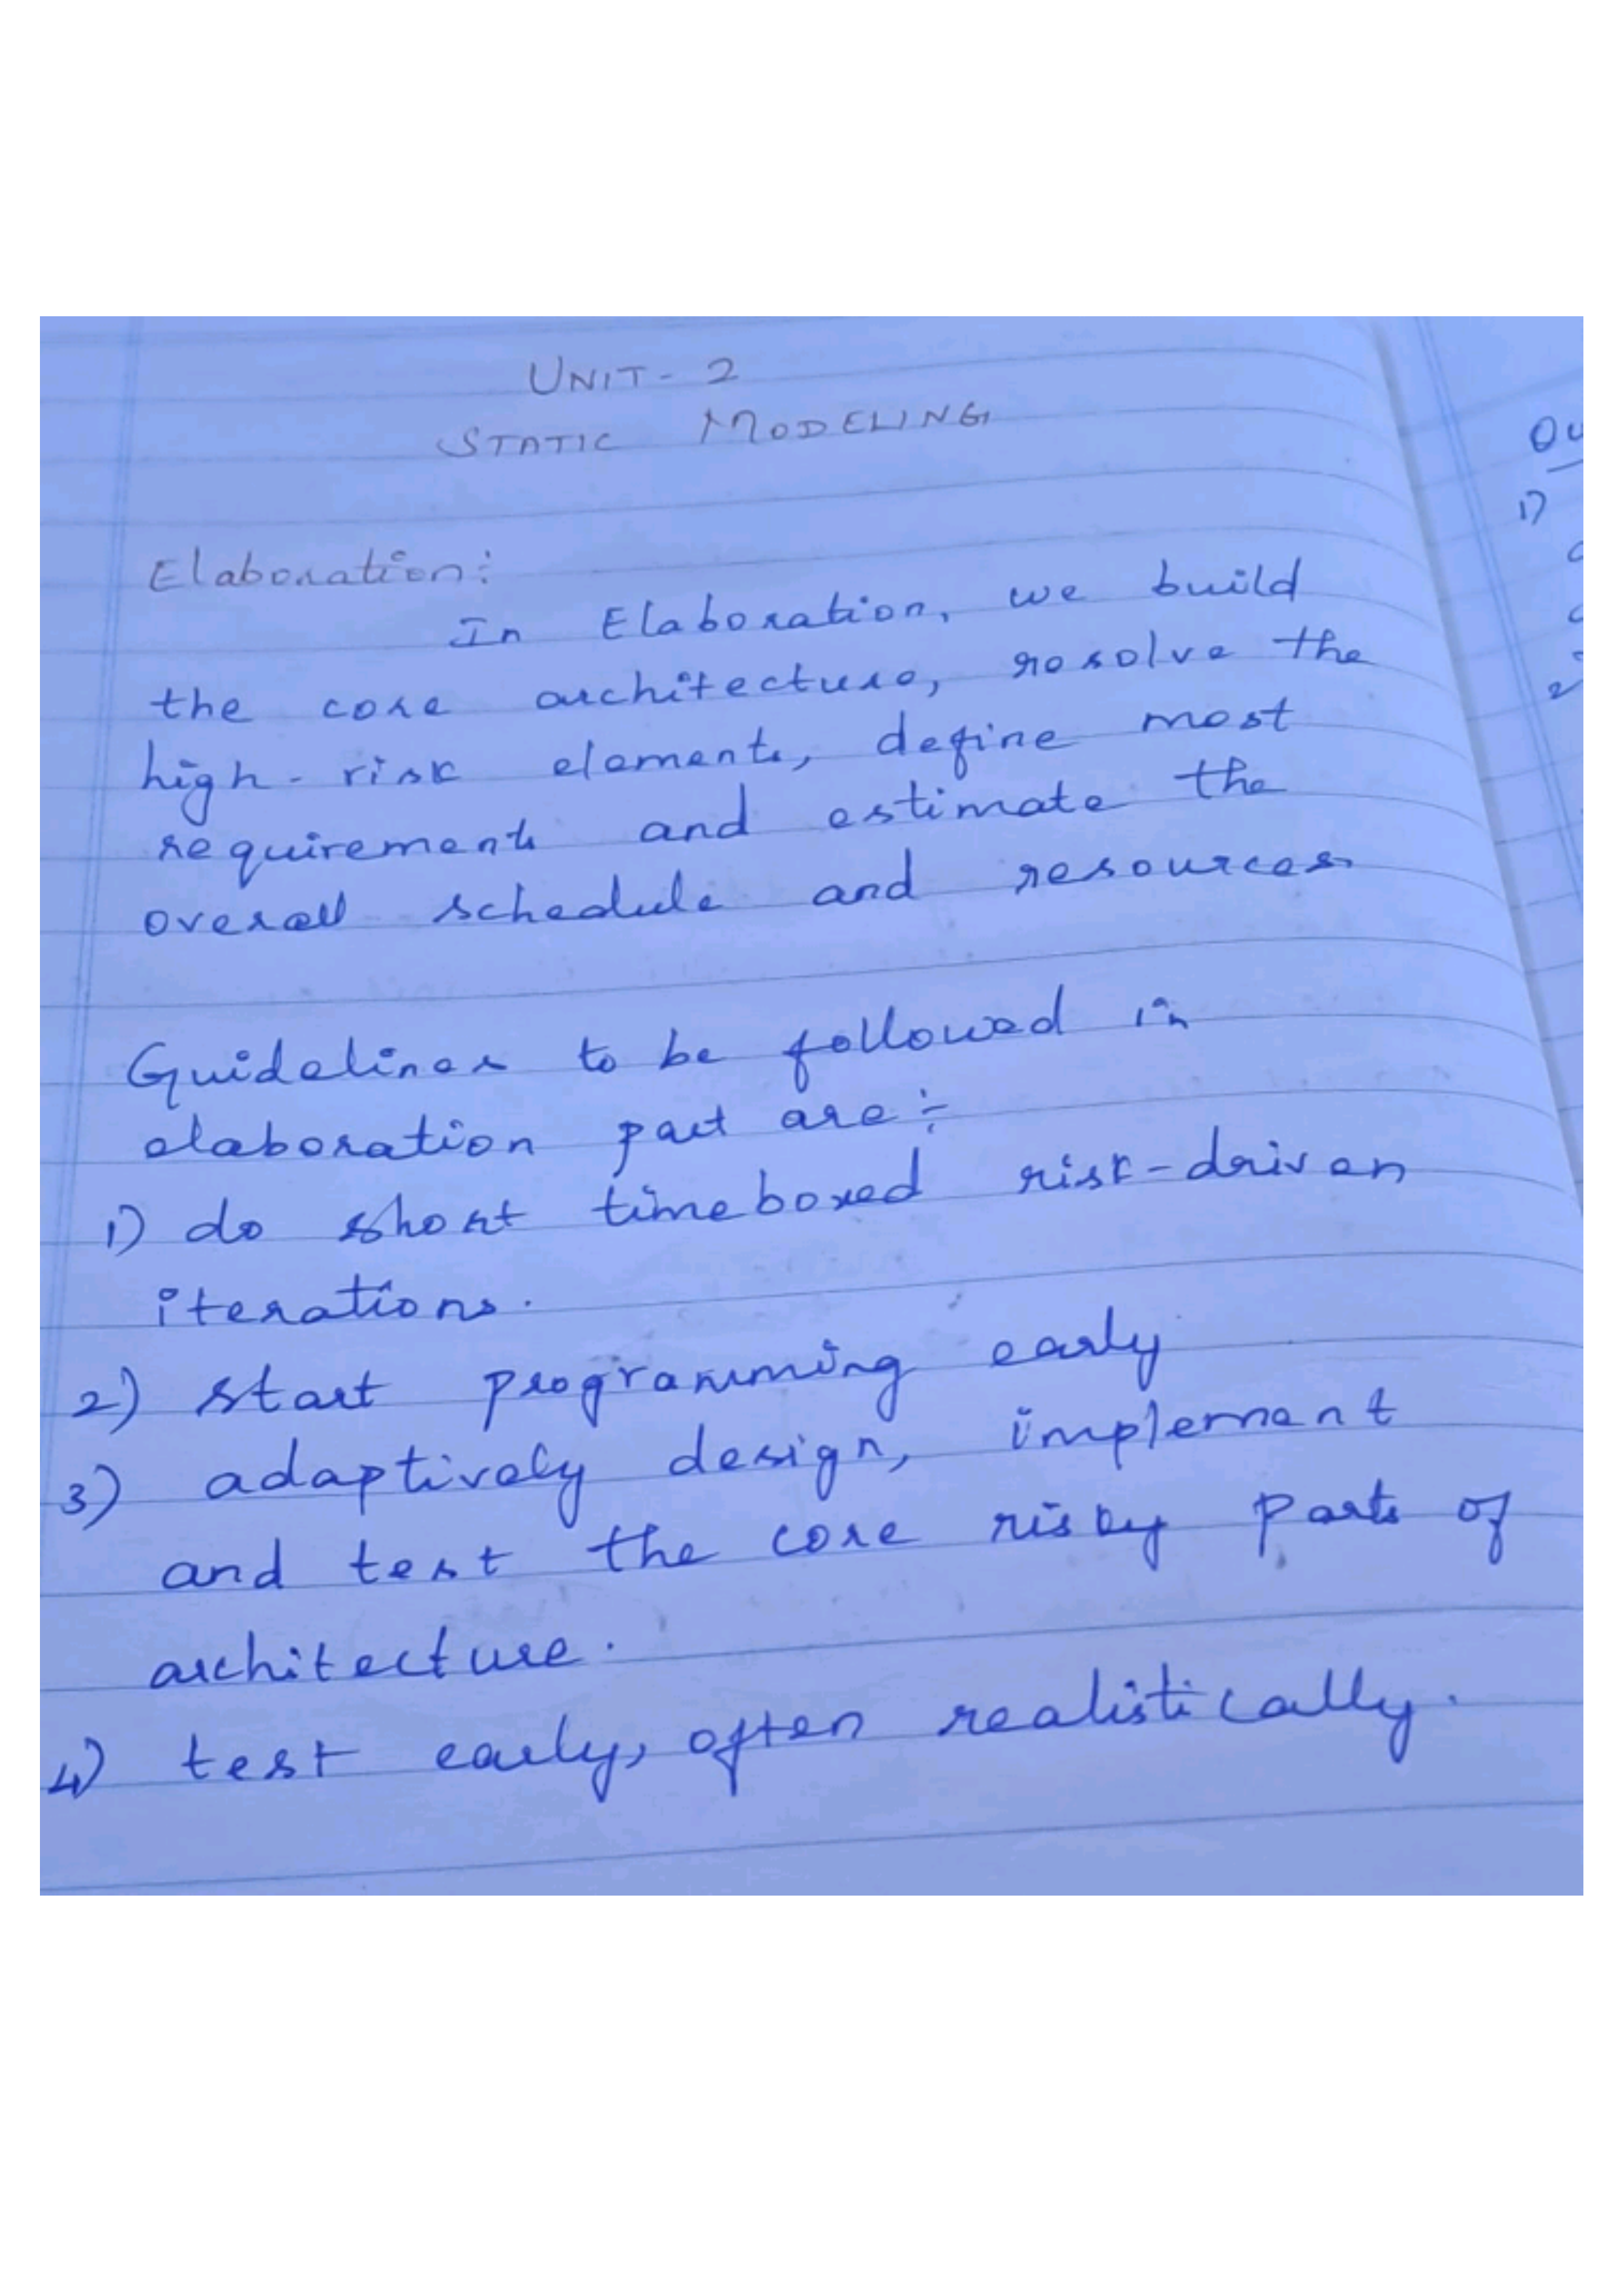 UNIT - 2
STATIC MODELING
Elaboration:
In Elaboration, we build
the core architecture, resolve the
high-risk elements, define most
requirements and estimate the
overall schedule and resources
Guidelines to be followed in
elaboration part are:-
1) do short timeboxed risk-driven
iterations.
2) start programming early
3) adaptively design, implement
and test the core risky parts of
architecture.
4) test early, often realistically.
1)
2